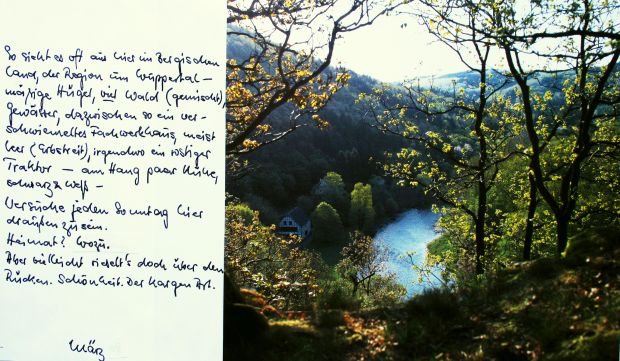 So sieht es oft aus hier im Bergischen
Land, der Region um Wuppertal –
mäßige Hügel, viel Wald (gemischt),
Gewässer, dazwischen so ein ver-
schwiemeltes Fachwerkhaus, meist
leer (Erbstreit), irgendwo ein rostiger
Traktor – am Hang paar Kühe,
schwarz & weiß –
Versuche jeden Sonntag hier
draußen zu sein.
Heimat? Wozu.
Aber vielleicht rieselt's doch über den
Rücken. Schönheit. Der kargen Art.
März